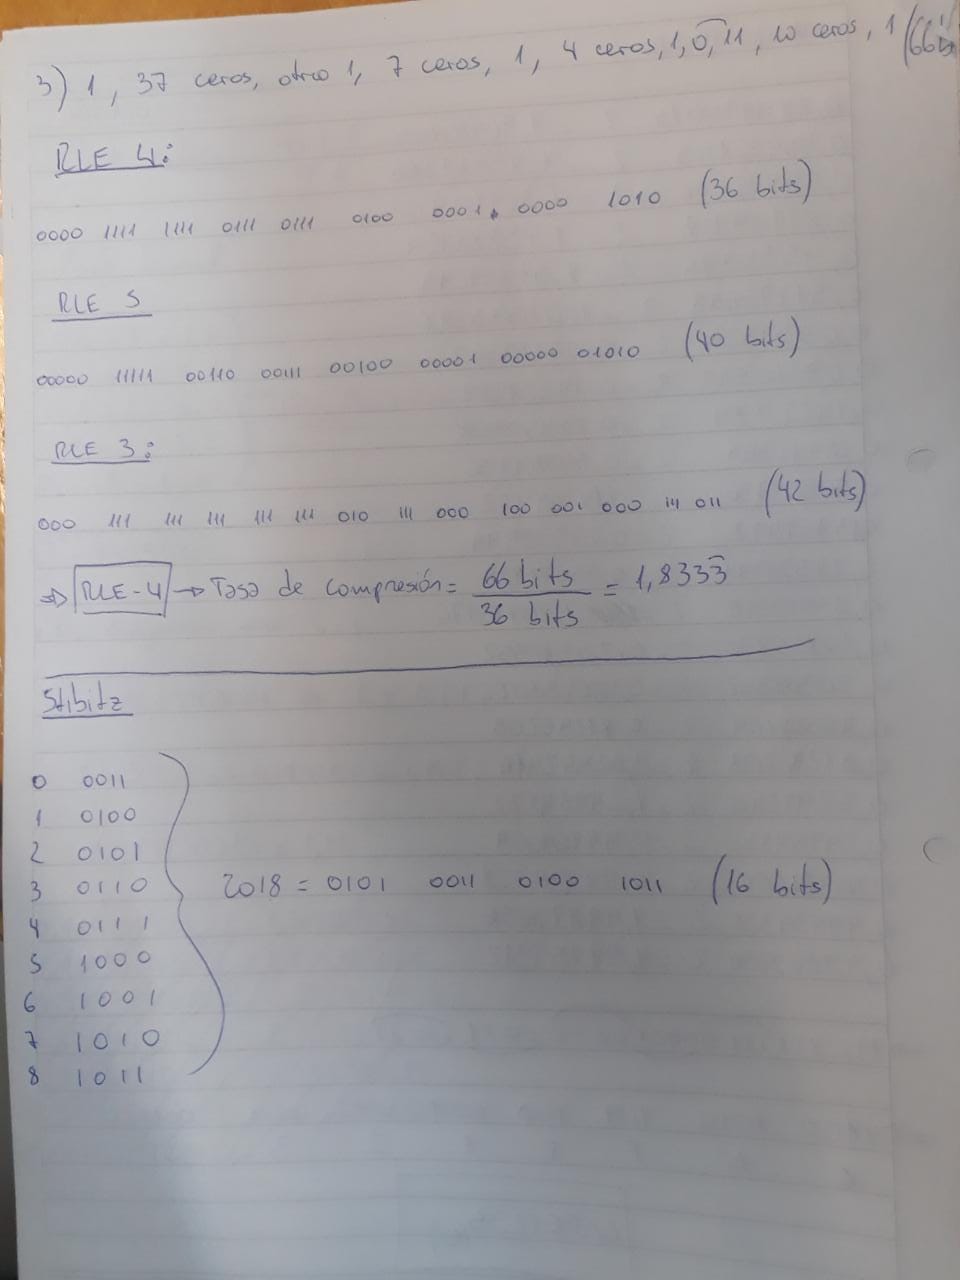 3) 1, 37 ceros, otro 1, 7 ceros, 1, 4 ceros, 1, 0, 11, 10 ceros, 1 (66
RLE 4:
0000 1111 1111 0111 0111 0100 0001 0000 1010 (36 bits)
RLE 5
00000 11111 00110 00111 00100 00001 00000 01010 (40 bits)
RLE 3:
000 111 111 111 111 111 010 111 000 100 001 000 111 011 (42 bits)
⇒ RLE-4 → Tasa de compresión = 66 bits / 36 bits = 1,8333
Stibitz
0 0011
1 0100
2 0101
3 0110
4 0111
5 1000
6 1001
7 1010
8 1011
2018 = 0101 0011 0100 1011 (16 bits)